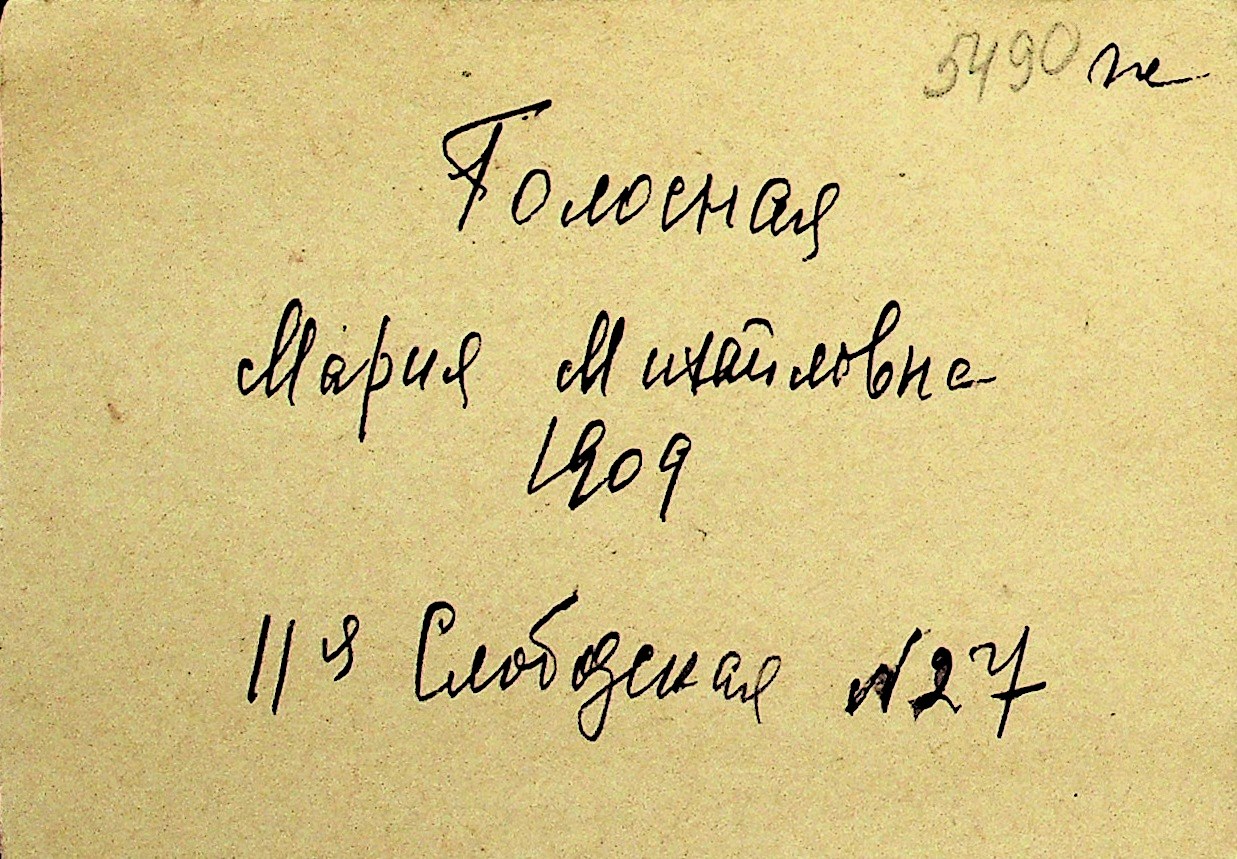 5490
Голосная
Мария Михайловна
1909
11я Слободская №27